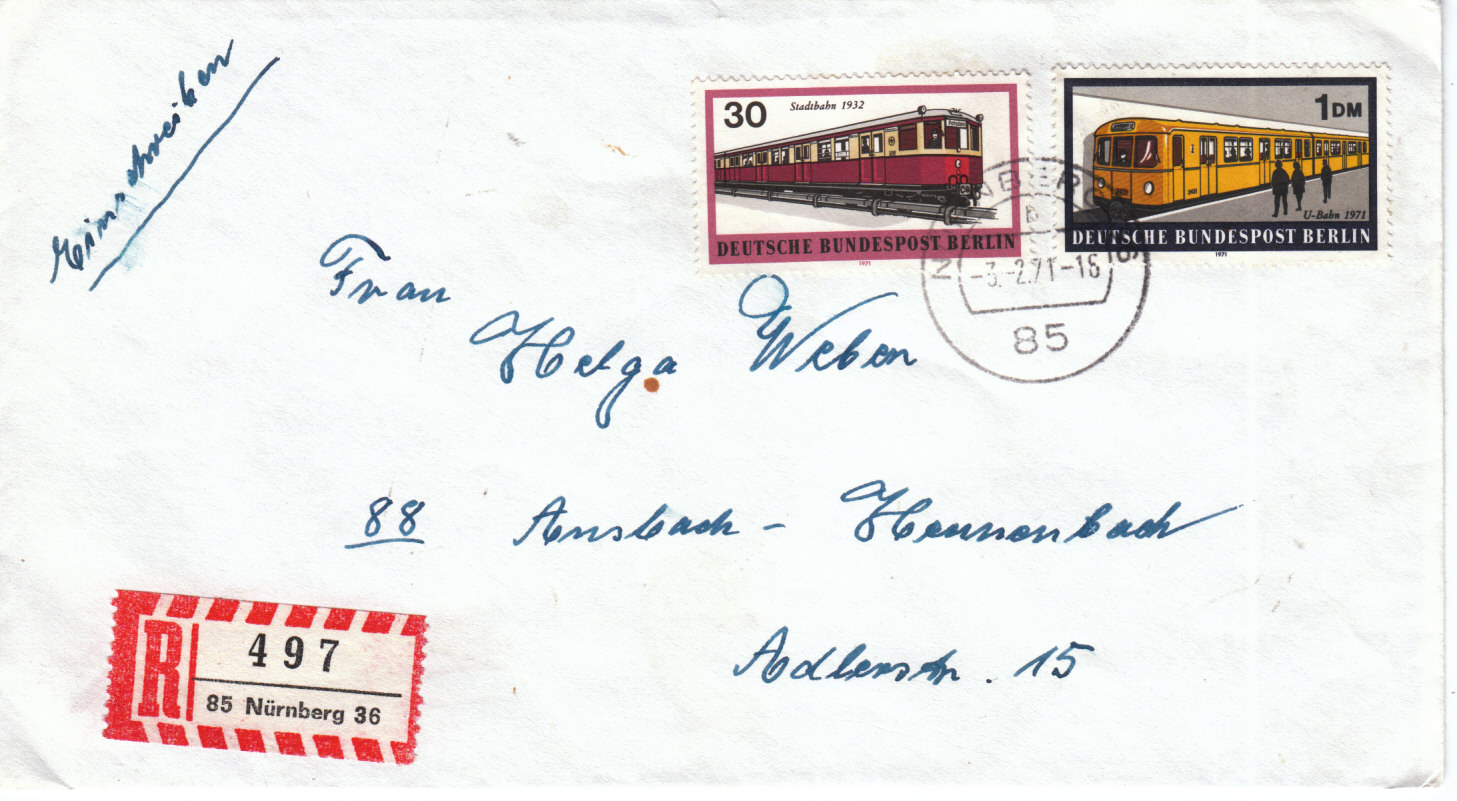 Einschreiben
30
Stadtbahn 1932
DEUTSCHE BUNDESPOST BERLIN
1971
1DM
U-Bahn 1971
DEUTSCHE BUNDESPOST BERLIN
1971
-3.-2.71-16
85
Frau
Helga Weber
88 Ansbach - Hennenbach
Adlerstr. 15
R
497
85 Nürnberg 36